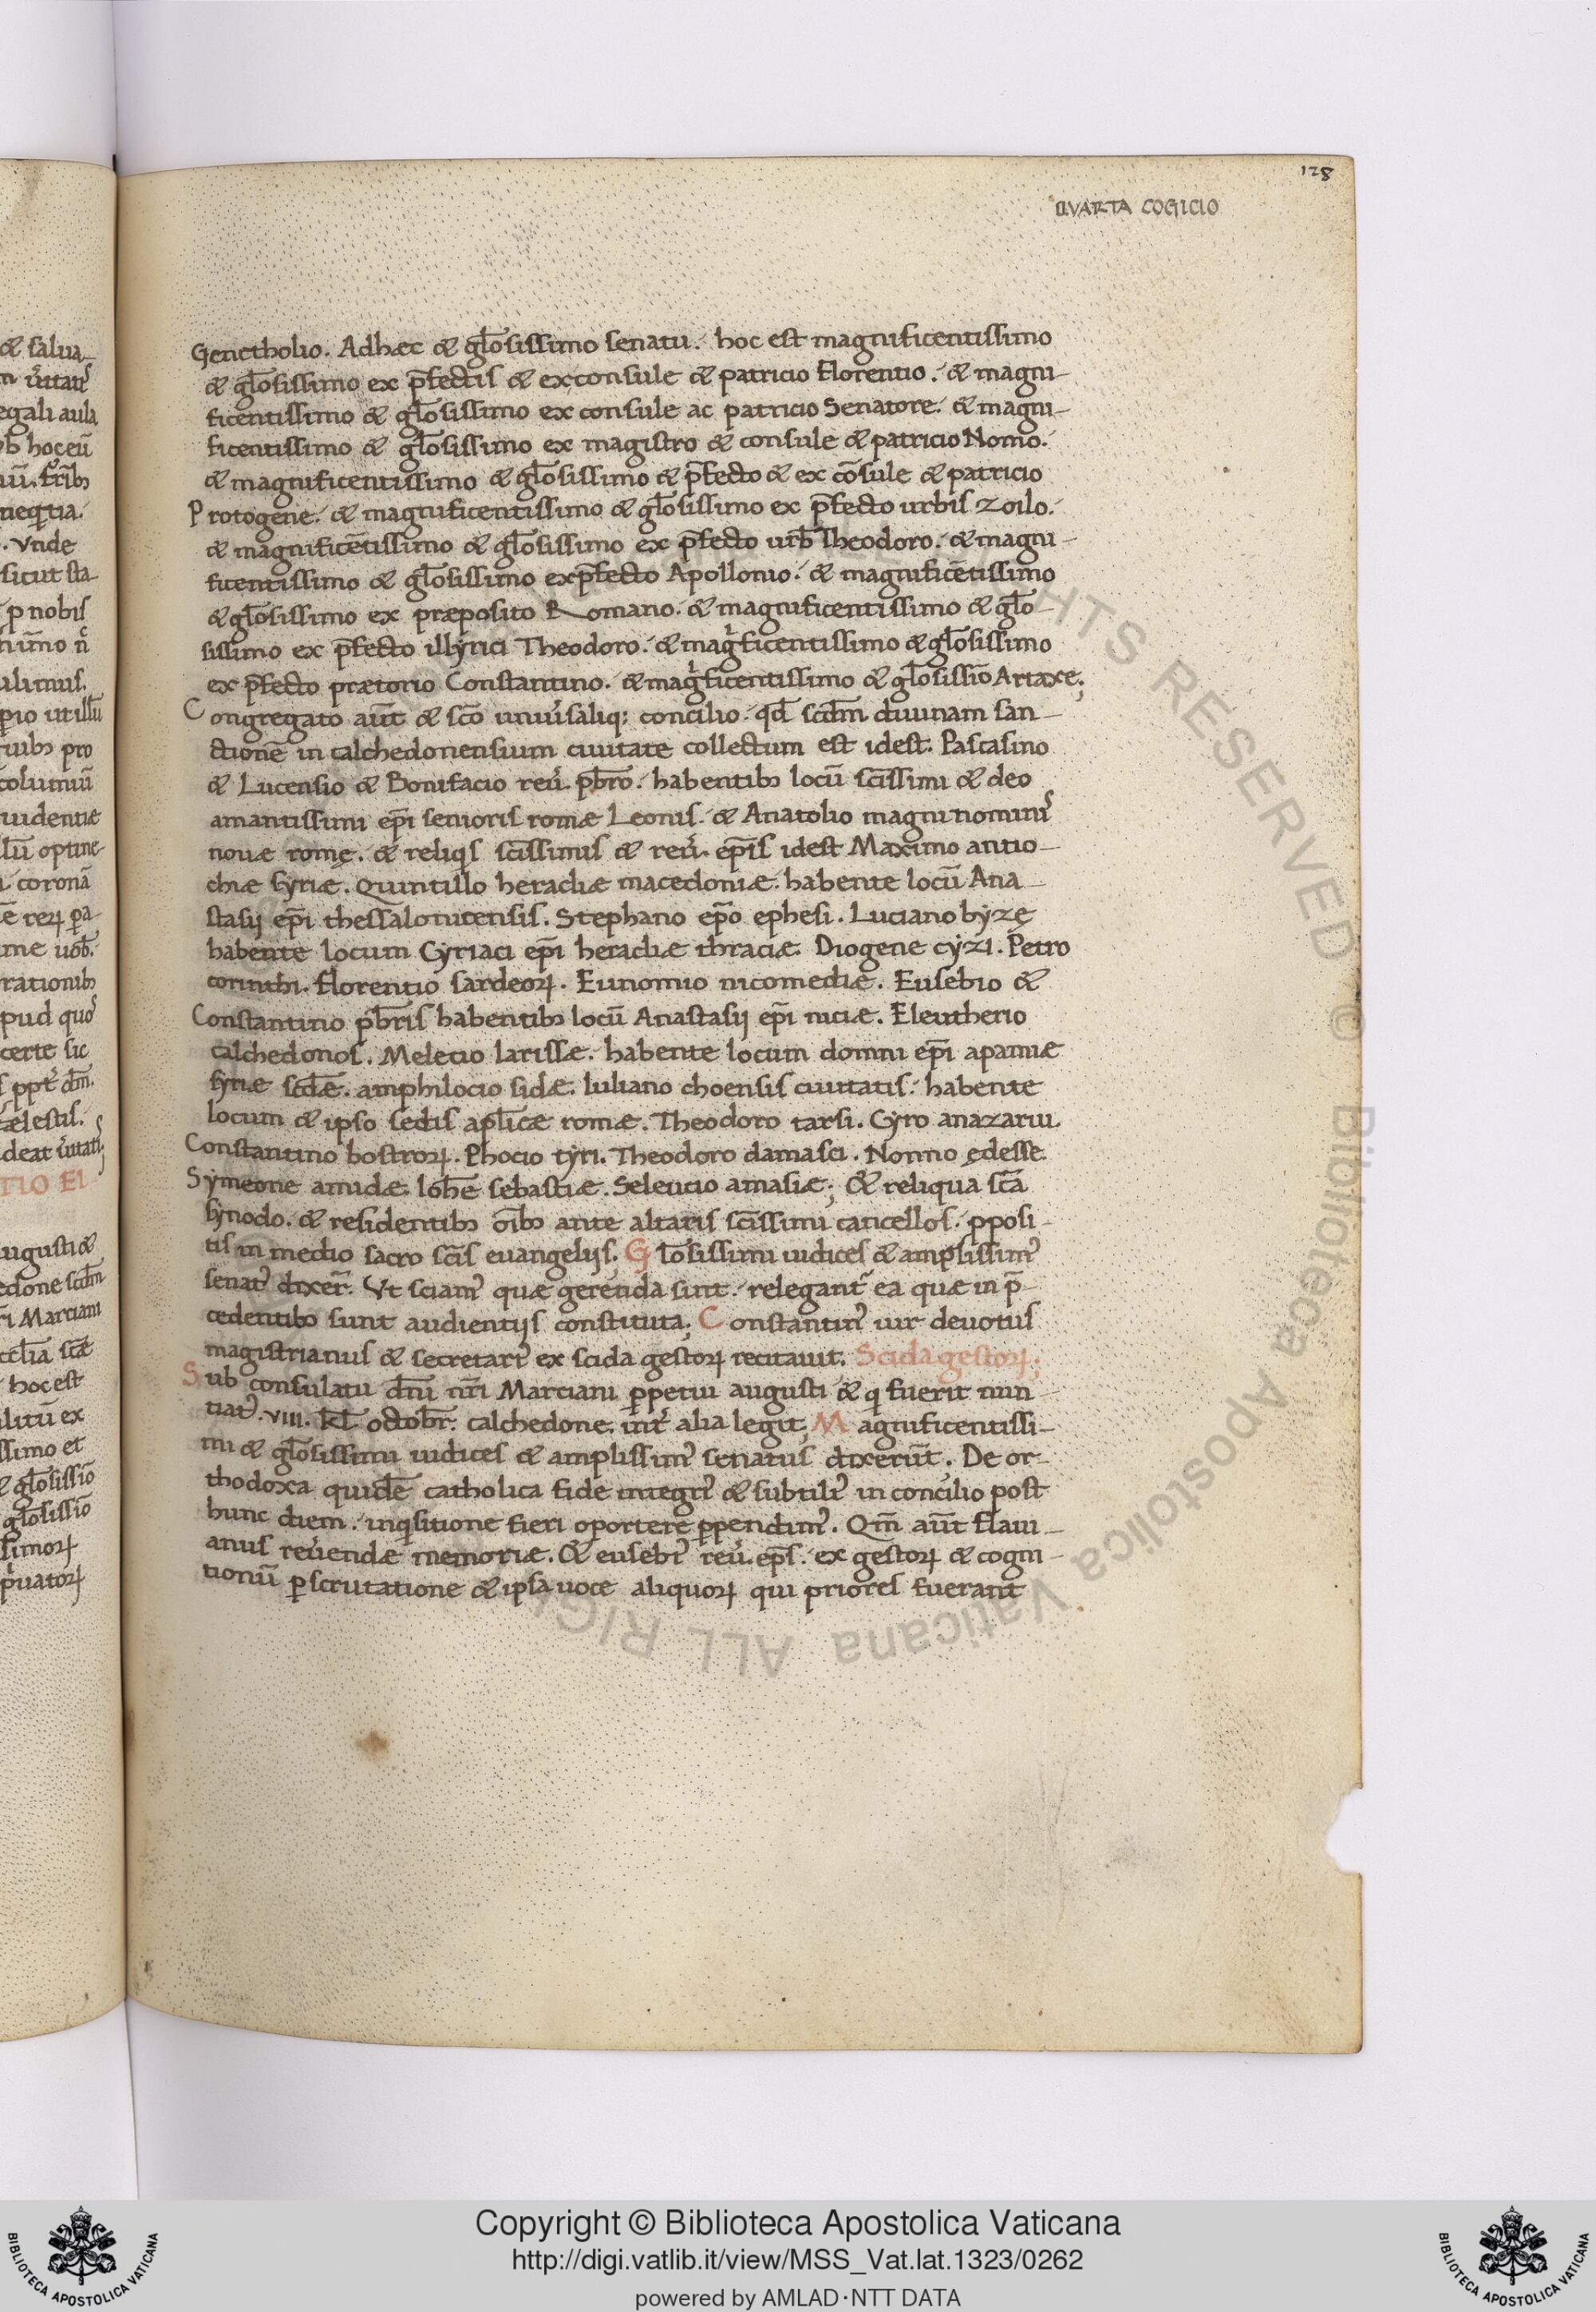 128
QVARTA COGICIO
Genetholio. Adhæc & gl̅osissimo senatu. hoc est magnificentissimo
& gl̅osissimo ex p̅fectis & exconsule & patricio Florentio. & magni-
ficentissimo & gl̅osissimo ex consule ac patricio Senatore. & magni-
ficentissimo & gl̅osissimo ex magistro & consule & patricio Nomo.
& magnificentissimo & gl̅osissimo & p̅fecto & ex co̅sule & patricio
Protogene. & magnificentissimo & gl̅osissimo ex p̅fecto urbis zoilo.
& magnifice̅tissimo & gl̅osissimo ex p̅fecto urb̅ Theodoro. & magni-
ficentissimo & gl̅osissimo exp̅fecto Apollonio. & magnifice̅tissimo
& gl̅osissimo ex præposito Romano. & magnificentissimo & gl̅o-
sissimo ex p̅fecto illyrici Theodoro. & magͥficentissimo & gl̅osissimo
ex p̅fecto prætorio Constantino. & magͥficentissimo & gl̅osissi̅o Artaxe;
Congregato au̅t & sc̅o uniu̓saliq; concilio. qd̅ scd̅m diuinam san-
ctione̅ in calchedonensium ciuitate collectum est idest. Pascasino
& Lucensio & Bonifacio reu̓. pb̅ro. habentibꝫ locu̅ sc̅issimi & deo
amantissimi ep̅i senioris romæ Leonis. & Anatolio magni nominis
nouæ romę. & reliqͥs sc̅issimis & reu̓. ep̅is idest Maximo antio-
chiæ syriæ. Quintillo heracliæ macedoniæ. habente locu̅ Ana-
stasij ep̅i thessalonicensis. Stephano ep̅o ephesi. Luciano byzę
habente locum Cyriaci ep̅i heracliæ thraciæ. Diogene cyzi. Petro
corinthi. Florentio sardeoꝝ. Eunomio nicomediæ. Eusebio &
Constantino pb̅ris habentibꝫ locu̅ Anastasij ep̅i niciæ. Eleutherio
calchedonos. Meletio larissæ. habente locum domni ep̅i apamiæ
syriæ scd̅æ. amphilocio sidæ. Iuliano choensis ciuitatis. habente
locum & ipso sedis apl̅icæ romæ. Theodoro tarsi. Cyro anazarui.
Constantino bostroꝝ. Phocio tyri. Theodoro damasci. Nonno ędesse.
Symeone amidæ. Ioh̅e sebastiæ. Seleucio amasiæ; & reliqua sc̅a
synodo. & residentibꝫ oi̅bꝫ ante altaris sc̅issimi cancellos. p̱posi-
tis in medio sacro sc̅is euangelijs; Gl̅osissimi iudices & amplissimꝰ
senatꝰ dixer̅. Vt sciamꝰ quæ gerenda sint. relegant̓ ea quæ in p̅-
cedentibꝫ sunt audientijs constituta; Constantinꝰ uir deuotus
magistrianus & secretariꝰ ex scida gestoꝝ recitauit. Scida gestoꝝ;
Sub consulatu dn̅i nr̅i Marciani ꝑpetui augusti & qͥ fuerit nun-
tiatꝰ. VIII. kl̅. octobr̅. calchedone. int̓ alia legit; Magnificentissi-
mi & gl̅osissimi iudices & amplissimꝰ senatus dixeru̅t. De or-
thodoxa quide̅ catholica fide integrꝰ & subtiliꝰ in concilio post
hunc diem. inqͥsitione fieri oportere ꝑpendimꝰ. Qm̅ au̅t Flaui-
anus reu̓endæ memoriæ. & eusebiꝰ reu̓. ep̅s. ex gestoꝝ & cogni-
tionu̅ ꝑscrutatione & ipsa uoce aliquoꝝ qui priores fuerant
Copyright © Biblioteca Apostolica Vaticana
http://digi.vatlib.it/view/MSS_Vat.lat.1323/0262
powered by AMLAD·NTT DATA
BIBLIOTECA APOSTOLICA VATICANA
BIBLIOTECA APOSTOLICA VATICANA